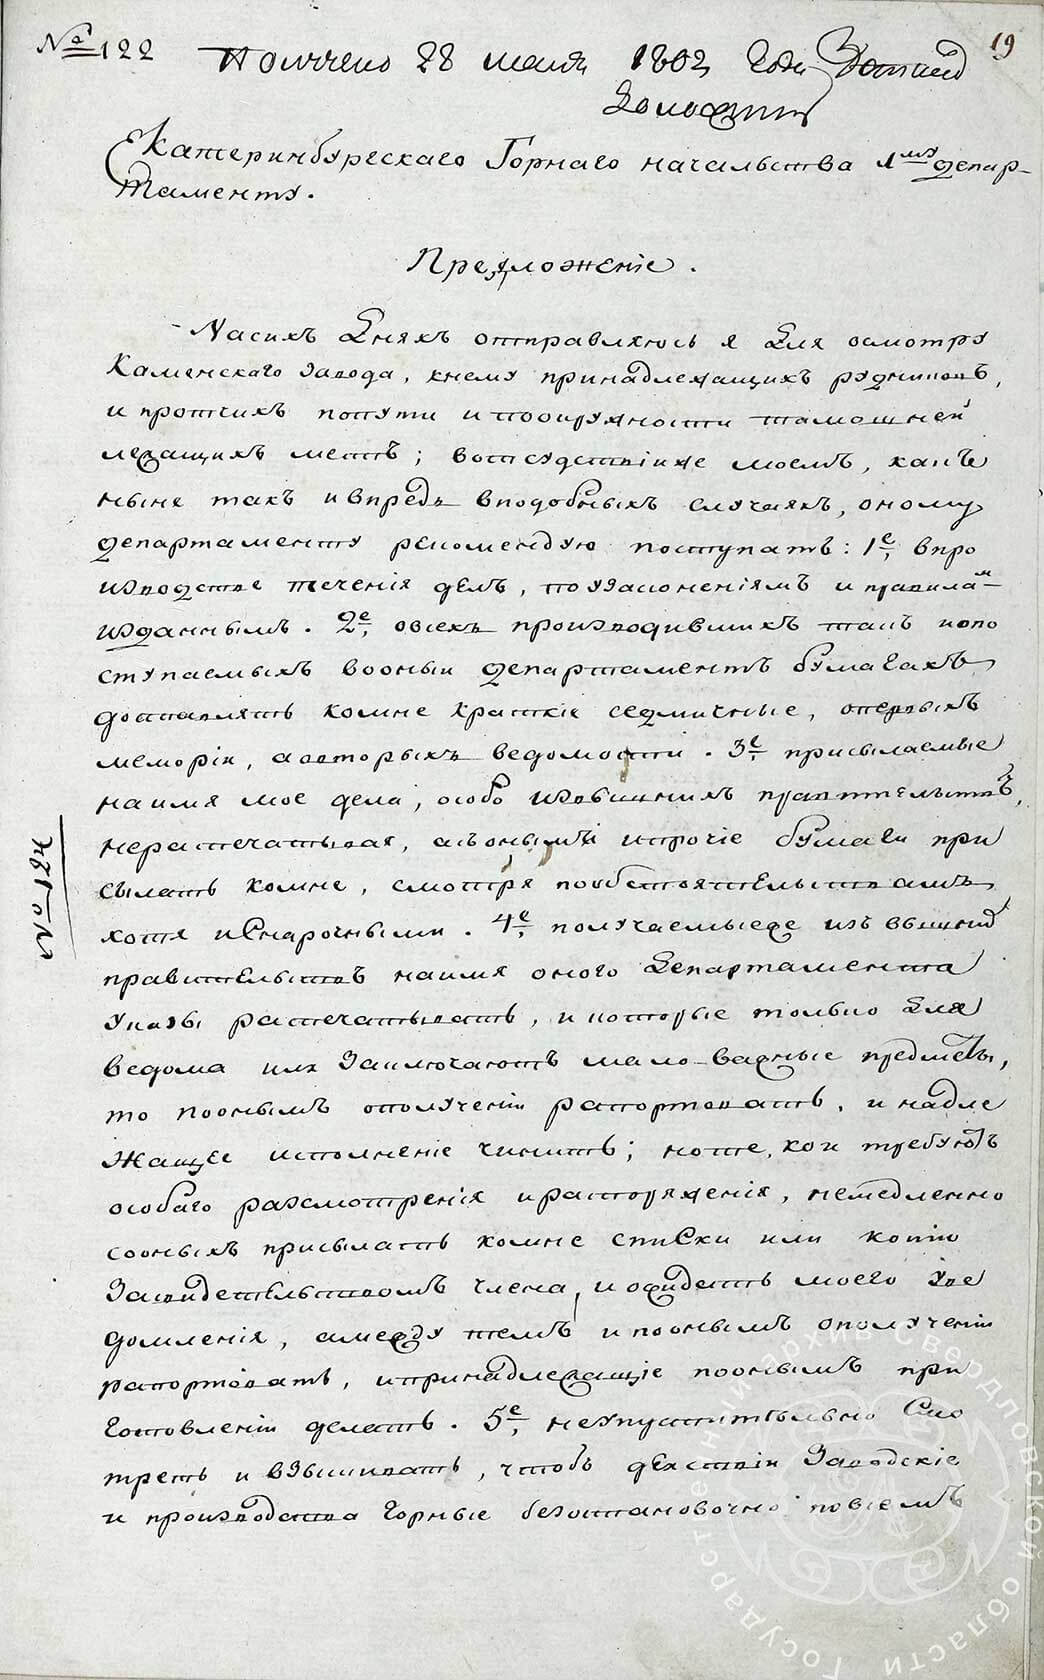 № 122
Получено 28 маия 1802 года
19
Екатеринбургскаго Горнаго начальства 1му депар-
таменту.
Предложеніе.
Насихъ дняхъ отправляюсь я для осмотру
Каменскаго завода, кнему принадлежащихъ рудниковъ,
и протчихъ попути и поокружности тамошней
лежащихъ местъ; вотсудствіи же моемъ, какъ
ныне такъ и впредь вподобныхъ случаяхъ, оному
департаменту рекомендую поступать: 1е, впро
изводстве теченія делъ, поузаконеніямъ и правилам
изданнымъ. 2е, овсехъ производившихъ такъ ипо
ступаемыхъ вооный департаментъ бумагахъ
доставлять комне краткіе седмичные, опервыхъ
меморіи, аовторыхъ ведомости. 3е, присылаемые
наимя мое дела, особо извышнихъ правительствъ,
нераспечатывая, асъонымъ ипрочіе бумаги при
сылать комне, смотря пообстоятельствамъ
хотя иснарочными. 4е, получаемыеже изъ вышнихъ
правительствъ наимя оного департамента
указы распечатывать, и которые только для
ведома или заключаютъ мало-важные предметы,
то поонымъ ополученіи рапортовать, и надле
жащее исполненіе чинить; ноте, кои требуютъ
особаго разсмотренія ираспоряженія, немедленно
сооныхъ присылать комне списки или копіи
засвидетельствомъ члена, и ожидать моего уве
домленія, амежду темъ ипоонымъ ополученіи
рапортовать, ипринадлежащіе поонымъ при
готовленіи делать. 5е, неупустительно смо
треть и взыскивать, чтобъ действіи заводскіе
и производства горные безостановочно повсемъ
№ 1874
Государственный архив Свердловской области